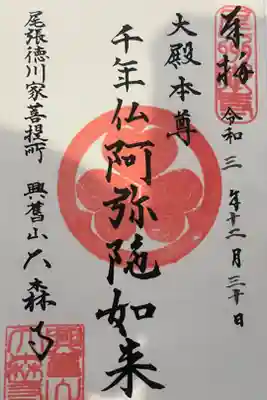 奉拝
令和三年十二月三十日
大殿本尊
千年仏阿弥陀如来
尾張徳川家菩提所
興舊山大森寺